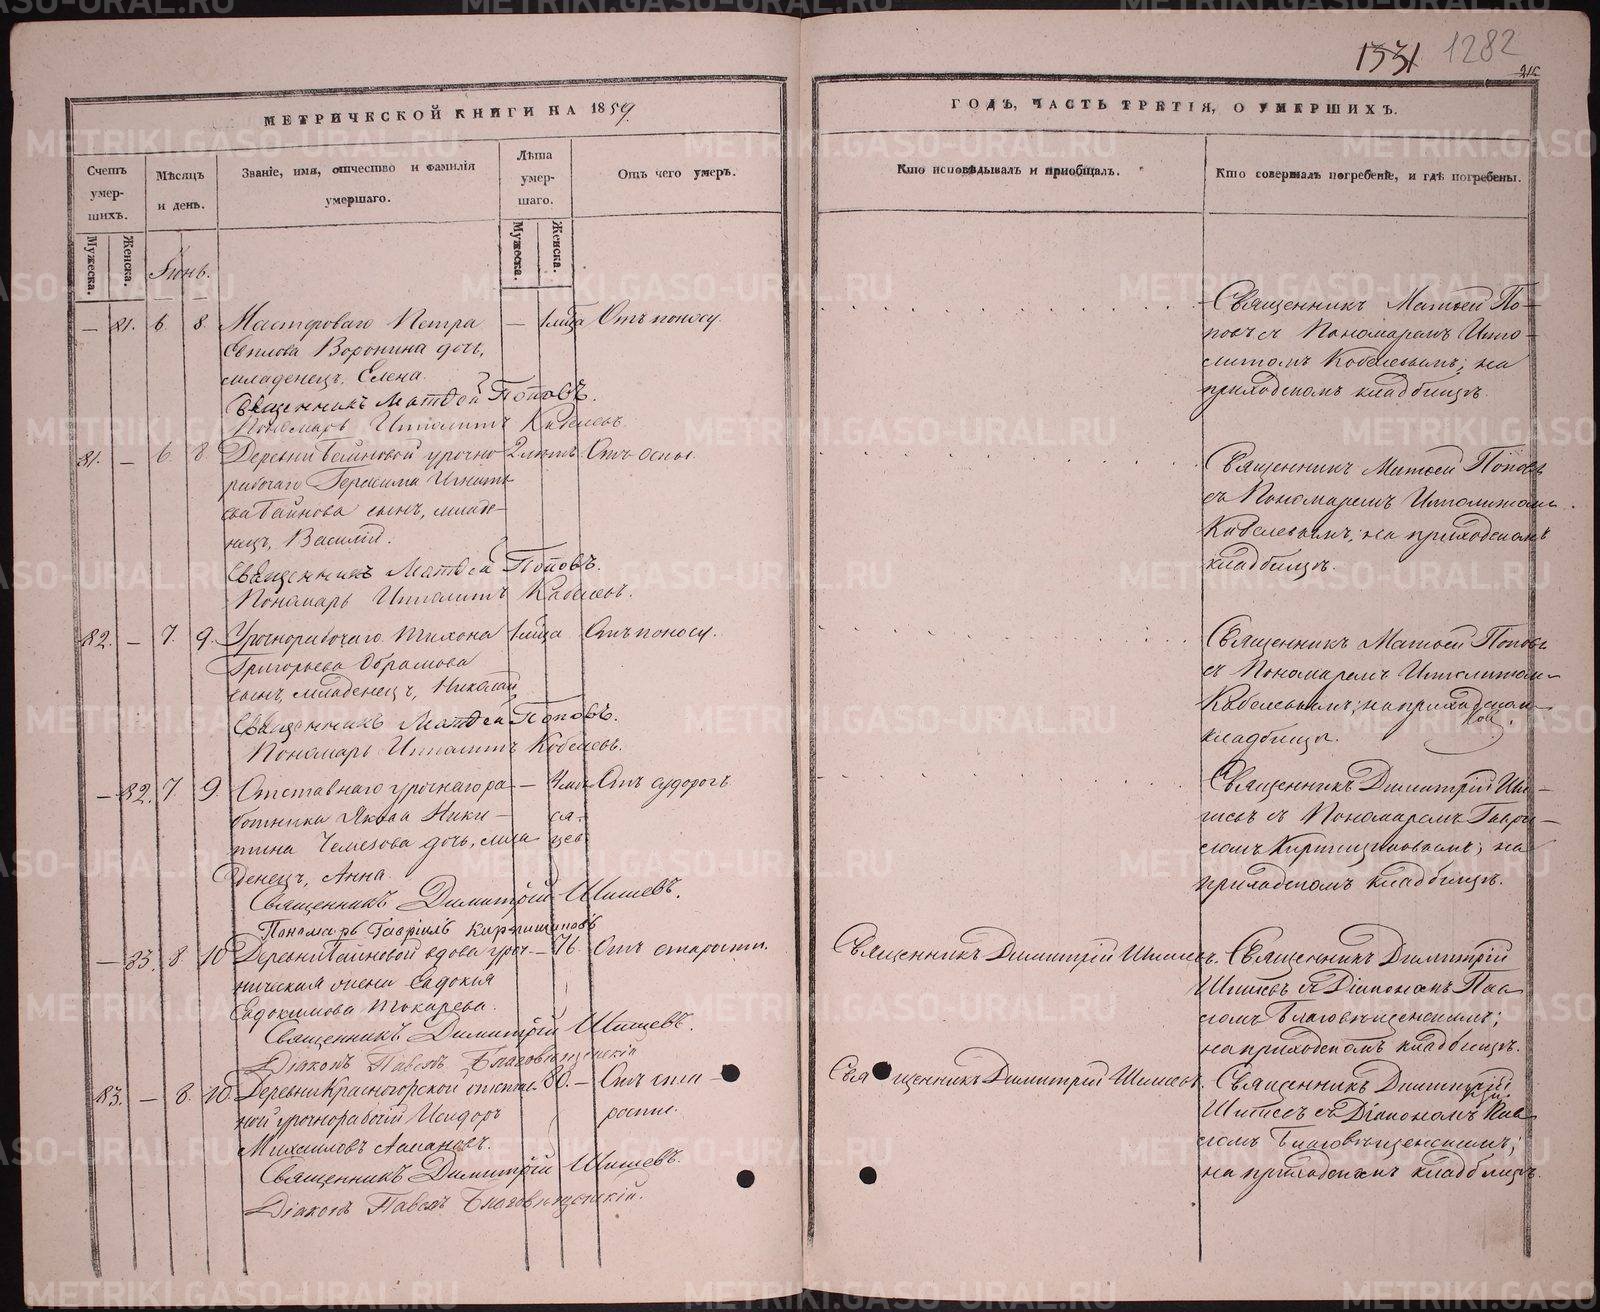 1331 1282
МЕТРИЧЕСКОЙ КНИГИ НА 1859
ГОДЪ, ЧАСТЬ ТРЕТІЯ, О УМЕРШИХЪ.
Счетъ умершихъ.
Мѣсяцъ и день.
Званіе, имя, отчество и фамилія умершаго.
Лѣта умершаго.
Отъ чего умеръ.
Кто исповѣдывалъ и пріобщалъ.
Кто совершалъ погребеніе, и гдѣ погребены.
Мужеска. Женска. Мужеска. Женска.
Іюнь.
— 81. 6. 8. Мастероваго Петра — 1 Отъ поносу.
Воронина дочь,
младенецъ, Елена.
Священникъ Матѳей Поповъ.
Пономарь Ипполитъ
Священникъ Матѳей По-
повъ съ Пономаремъ Иппо-
литомъ на
приходскомъ кладбищѣ.
81. — 6. 8. Деревни урочно- 2 Отъ оспы.
рабочаго Герасима
сынъ, младе-
нецъ, Василій.
Священникъ Матѳей Поповъ.
Пономарь Ипполитъ
Священникъ Матѳей Поповъ
съ Пономаремъ Ипполитомъ
на приходскомъ
кладбищѣ.
82. — 7. 9. Урочнорабочаго Тихона 1 Отъ поносу.
Григорьева Обрамова
сынъ, младенецъ, Николай
Священникъ Матѳей Поповъ.
Пономарь Ипполитъ
Священникъ Матѳей Поповъ
съ Пономаремъ Ипполитомъ
на приходскомъ
кладбищѣ.
— 82. 7. 9. Отставнаго урочнаго ра- — 4 мѣ- Отъ судорогъ
ботника Якова Ники- ся-
тина Чемезова дочь, мла- цев
денецъ, Анна.
Священникъ Димитрій Шишевъ.
Пономарь Гавріилъ Кирпищиковъ
Священникъ Димитрій Ши-
шевъ съ Пономаремъ Гаврі-
иломъ Кирпищиковымъ; на
приходскомъ кладбищѣ.
— 83. 8. 10 Деревни вдова уроч- — 76. Отъ старости.
ническая жена Евдокія
Евдокимова Токарева.
Священникъ Димитрій Шишевъ.
Діаконъ Павелъ Благовѣщенскій
Священникъ Димитрій Шишевъ.
Священникъ Димитрій
Шишевъ съ Діакономъ Пав-
ломъ Благовѣщенскимъ;
на приходскомъ кладбищѣ.
83. — 8. 10. Деревни Красногорской отстав- 80. — Отъ ста-
ной урочнорабочій Исидоръ рости.
Михаиловъ
Священникъ Димитрій Шишевъ.
Діаконъ Павелъ Благовѣщенскій.
Священникъ Димитрій Шишевъ.
Священникъ Димитрій
Шишевъ съ Діакономъ Пав-
ломъ Благовѣщенскимъ;
на приходскомъ кладбищѣ.
METRIKI.GASO-URAL.RU